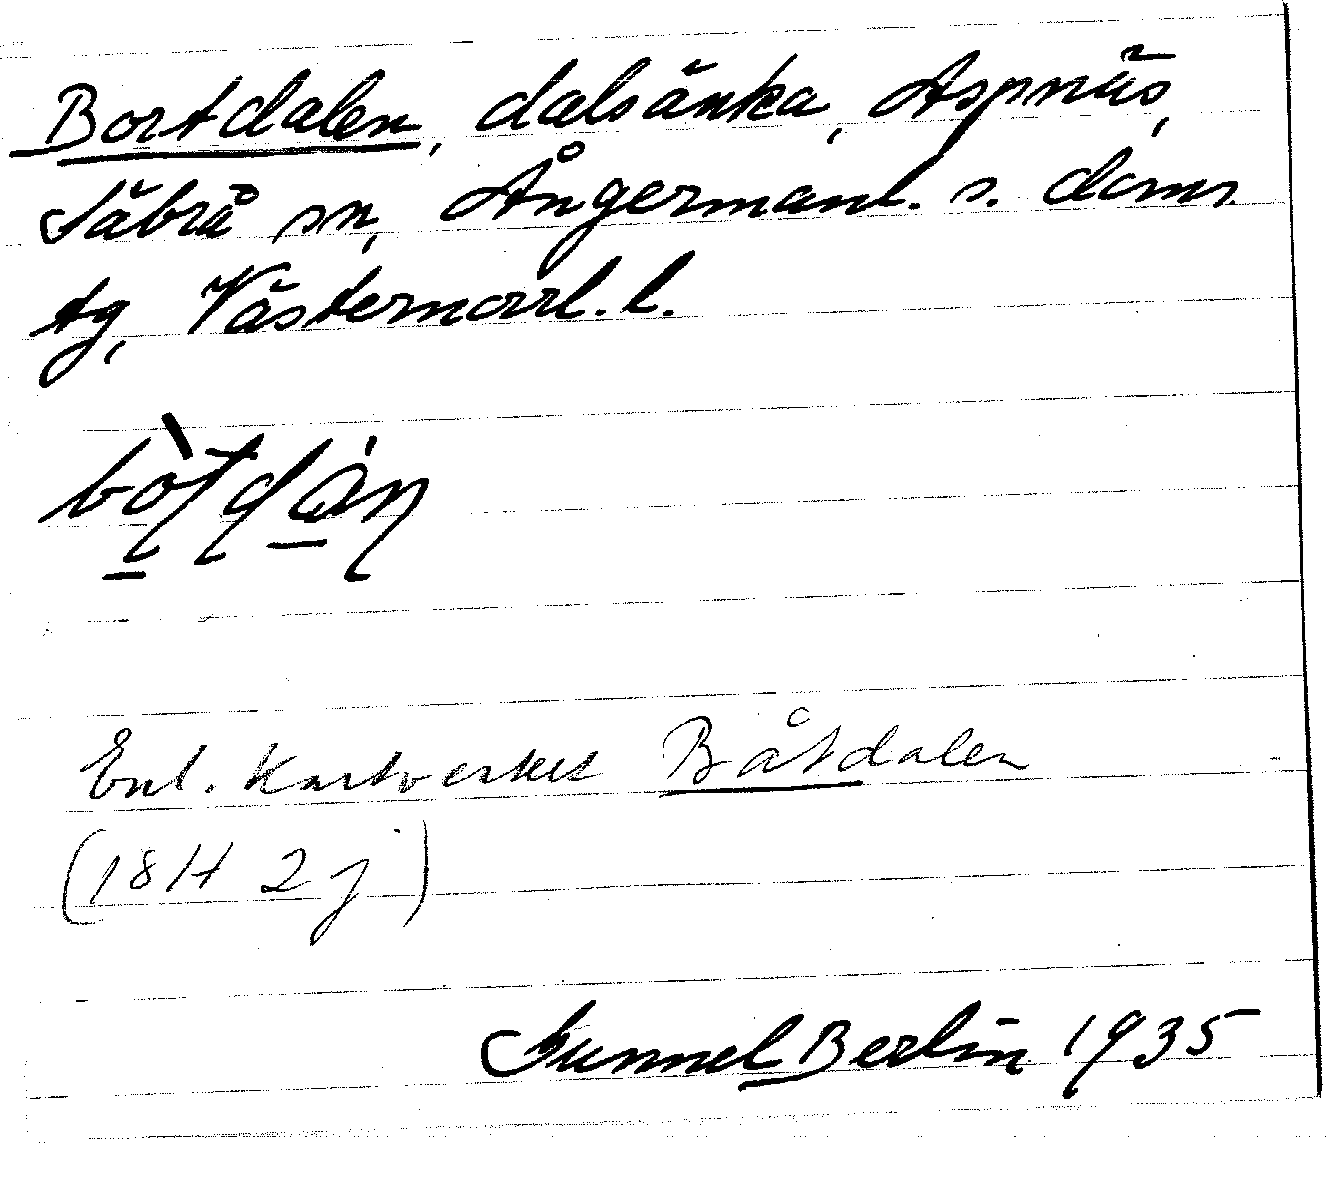 Bortdalen, dalsänka, Aspnäs,
Säbrå sn, Ångermanl. s. doms.
tg, Västernorrl. l.
Enl. Kartverket Båtdalen
(18H 2j)
Gunnel Berlin 1935